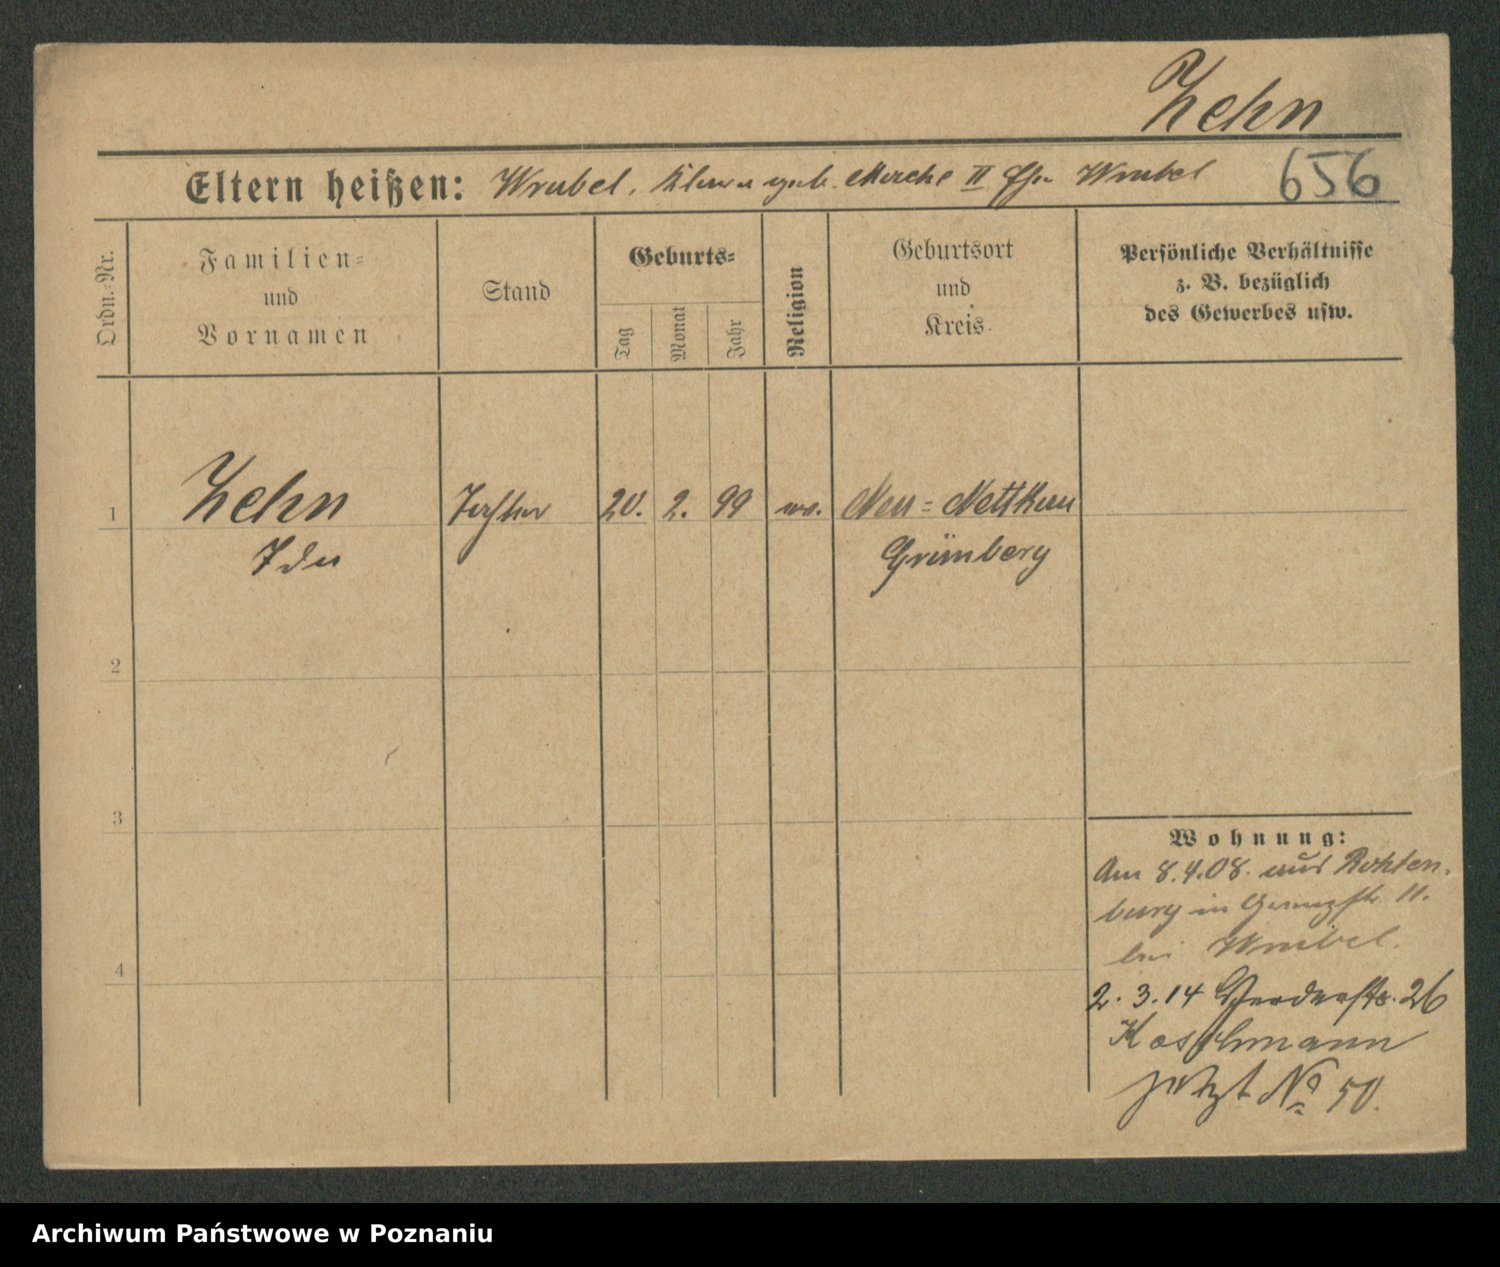 Zehn
Eltern heißen: Wrubel, geb. II Wrubel 656
Ordn.-Nr.
Familien-
und
Vornamen
Stand
Geburts-
Tag
Monat
Jahr
Religion
Geburtsort
und
Kreis.
Persönliche Verhältnisse
z. B. bezüglich
des Gewerbes usw.
1 Zehn Tochter 20. 2. 99 ev. Neu-Nettkau
Ida Grünberg
2
3
4
Wohnung:
Am 8.4.08. aus Rothen-
burg in 11.
bei Wrubel.
2. 3. 14 26
Koschmann
jetzt No 50.
Archiwum Państwowe w Poznaniu